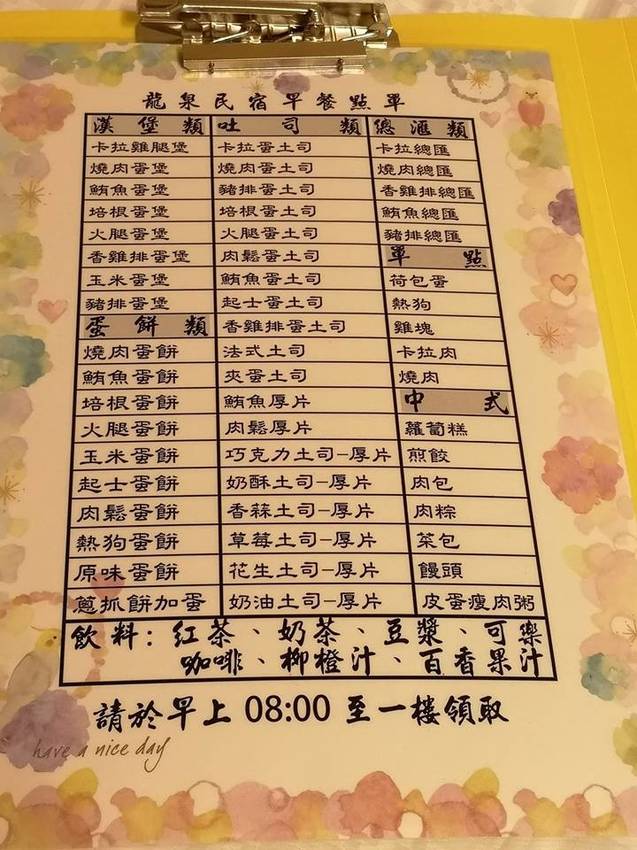 龍泉民宿早餐點單
漢堡類 吐司類 總滙類
卡拉雞腿堡 卡拉蛋土司 卡拉總匯
燒肉蛋堡 燒肉蛋土司 燒肉總匯
鮪魚蛋堡 豬排蛋土司 香雞排總匯
培根蛋堡 培根蛋土司 鮪魚總匯
火腿蛋堡 火腿蛋土司 豬排總匯
香雞排蛋堡 肉鬆蛋土司 單點
玉米蛋堡 鮪魚蛋土司 荷包蛋
豬排蛋堡 起士蛋土司 熱狗
蛋餅類 香雞排蛋土司 雞塊
燒肉蛋餅 法式土司 卡拉肉
鮪魚蛋餅 夾蛋土司 燒肉
培根蛋餅 鮪魚厚片 中式
火腿蛋餅 肉鬆厚片 蘿蔔糕
玉米蛋餅 巧克力土司-厚片 煎餃
起士蛋餅 奶酥土司-厚片 肉包
肉鬆蛋餅 香蒜土司-厚片 肉粽
熱狗蛋餅 草莓土司-厚片 菜包
原味蛋餅 花生土司-厚片 饅頭
蔥抓餅加蛋 奶油土司-厚片 皮蛋瘦肉粥
飲料:紅茶、奶茶、豆漿、可樂
咖啡、柳橙汁、百香果汁
請於早上 08:00 至一樓領取
have a nice day